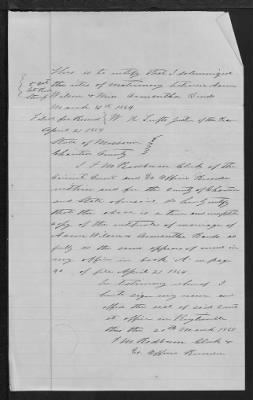 This is to certify that I solemnized
the rites of matrimony between
Wilson & Miss Samantha
March 1864
Filed for Record W. H. Justice of the Peace
April 21 1864
State of Missouri
Chariton County
I F M Redburn Clerk of the
Circuit Court and Ex Officio Recorder
within and for the County of Chariton
and State aforesaid, do hereby certify
that the above is a true and complete
copy of the certificate of marriage of
Wilson & Samantha as
fully as the same appears of record in
my office in book A on page
90 of file April 21 1864
In testimony whereof I
hereto sign my name and
affix the seal of said Court
at office in Keytesville
this the 20th March 1868
F M Redburn Clerk &
Ex Officio Recorder